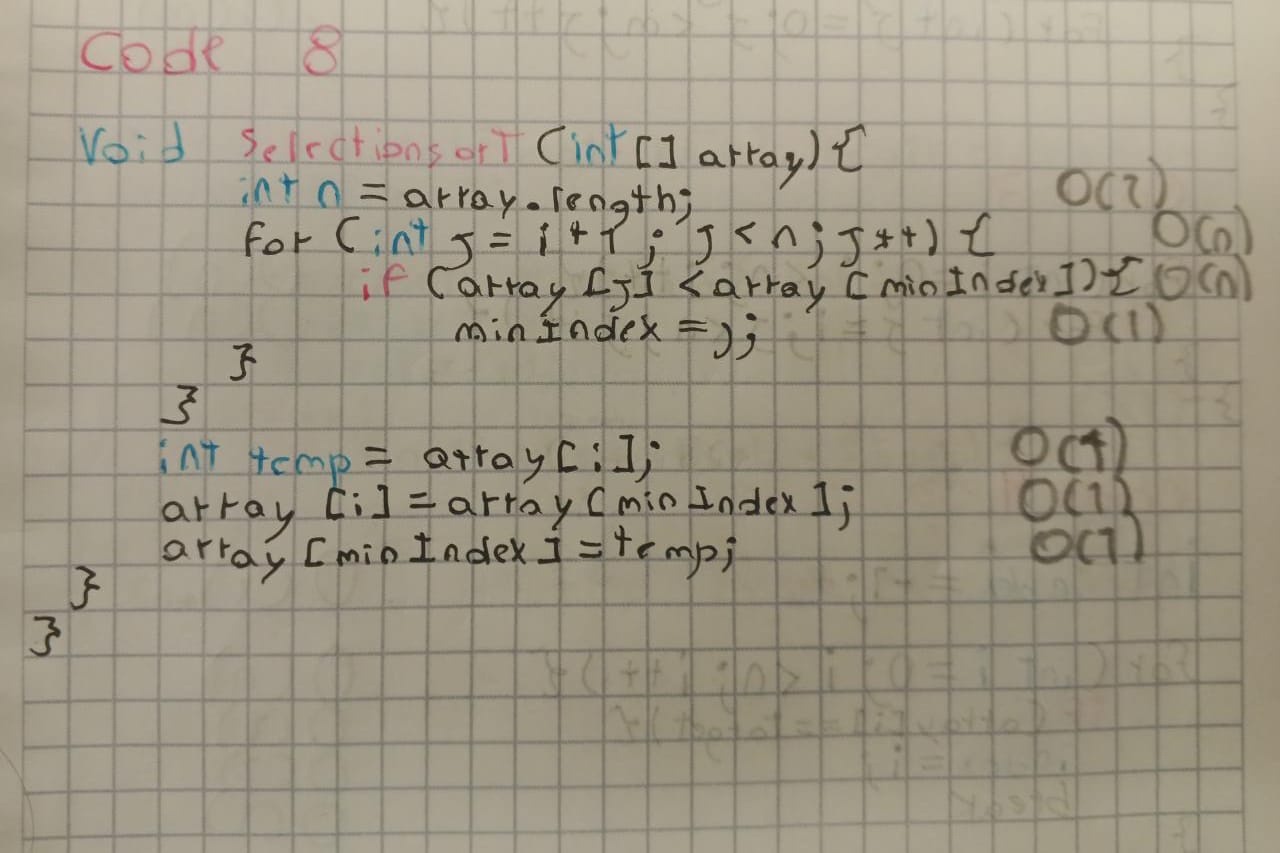 Code 8
Void Selectionsort (int [] array) {
int n = array.length; O(1)
For (int j = i + 1 ; j < n; j++) { O(n)
if (array [j] < array [minIndex]) { O(n)
minIndex = j; O(1)
}
}
int temp = array [i]; O(1)
array [i] = array [minIndex]; O(1)
array [minIndex] = temp; O(1)
}
}